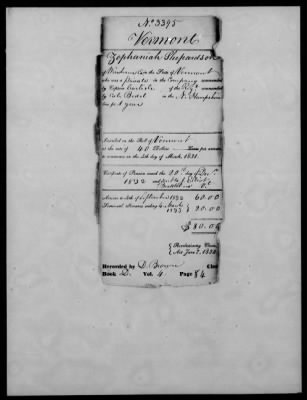 No 3395
Vermont
Zephaniah Shepardson
of Windham Co. in the State of Vermont
who was a Private in the Company commanded
by Captain Carlisle of the Regt commanded
by Col. Bedel in the N. Hampshire
line for 1 year
Inscribed on the Roll of Vermont
at the rate of 40 Dollars Cents per annum
to commence on the 4th day of March, 1831.
Certificate of Pension issued the 20th day of
1832
Arrears to 4th of September 1832 60.00
Semi-anl. allowance ending 4 March 1833 20.00
$80.00
Revolutionary Claim
Act June 7, 1832
Recorded by D. Brown Clerk
Book D Vol. 4 Page 84